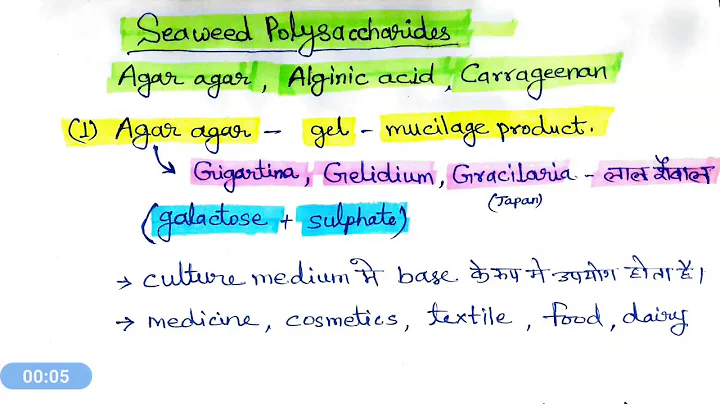 Seaweed Polysaccharides
Agar agar, Alginic acid, Carrageenan
(1) Agar agar - gel - mucilage product.
↳ Gigartina, Gelidium, Gracilaria - लाल शैवाल
(Japan)
(galactose + sulphate)
→ culture medium में base के रूप में उपयोग होता है।
→ medicine, cosmetics, textile, food, dairy
00:05